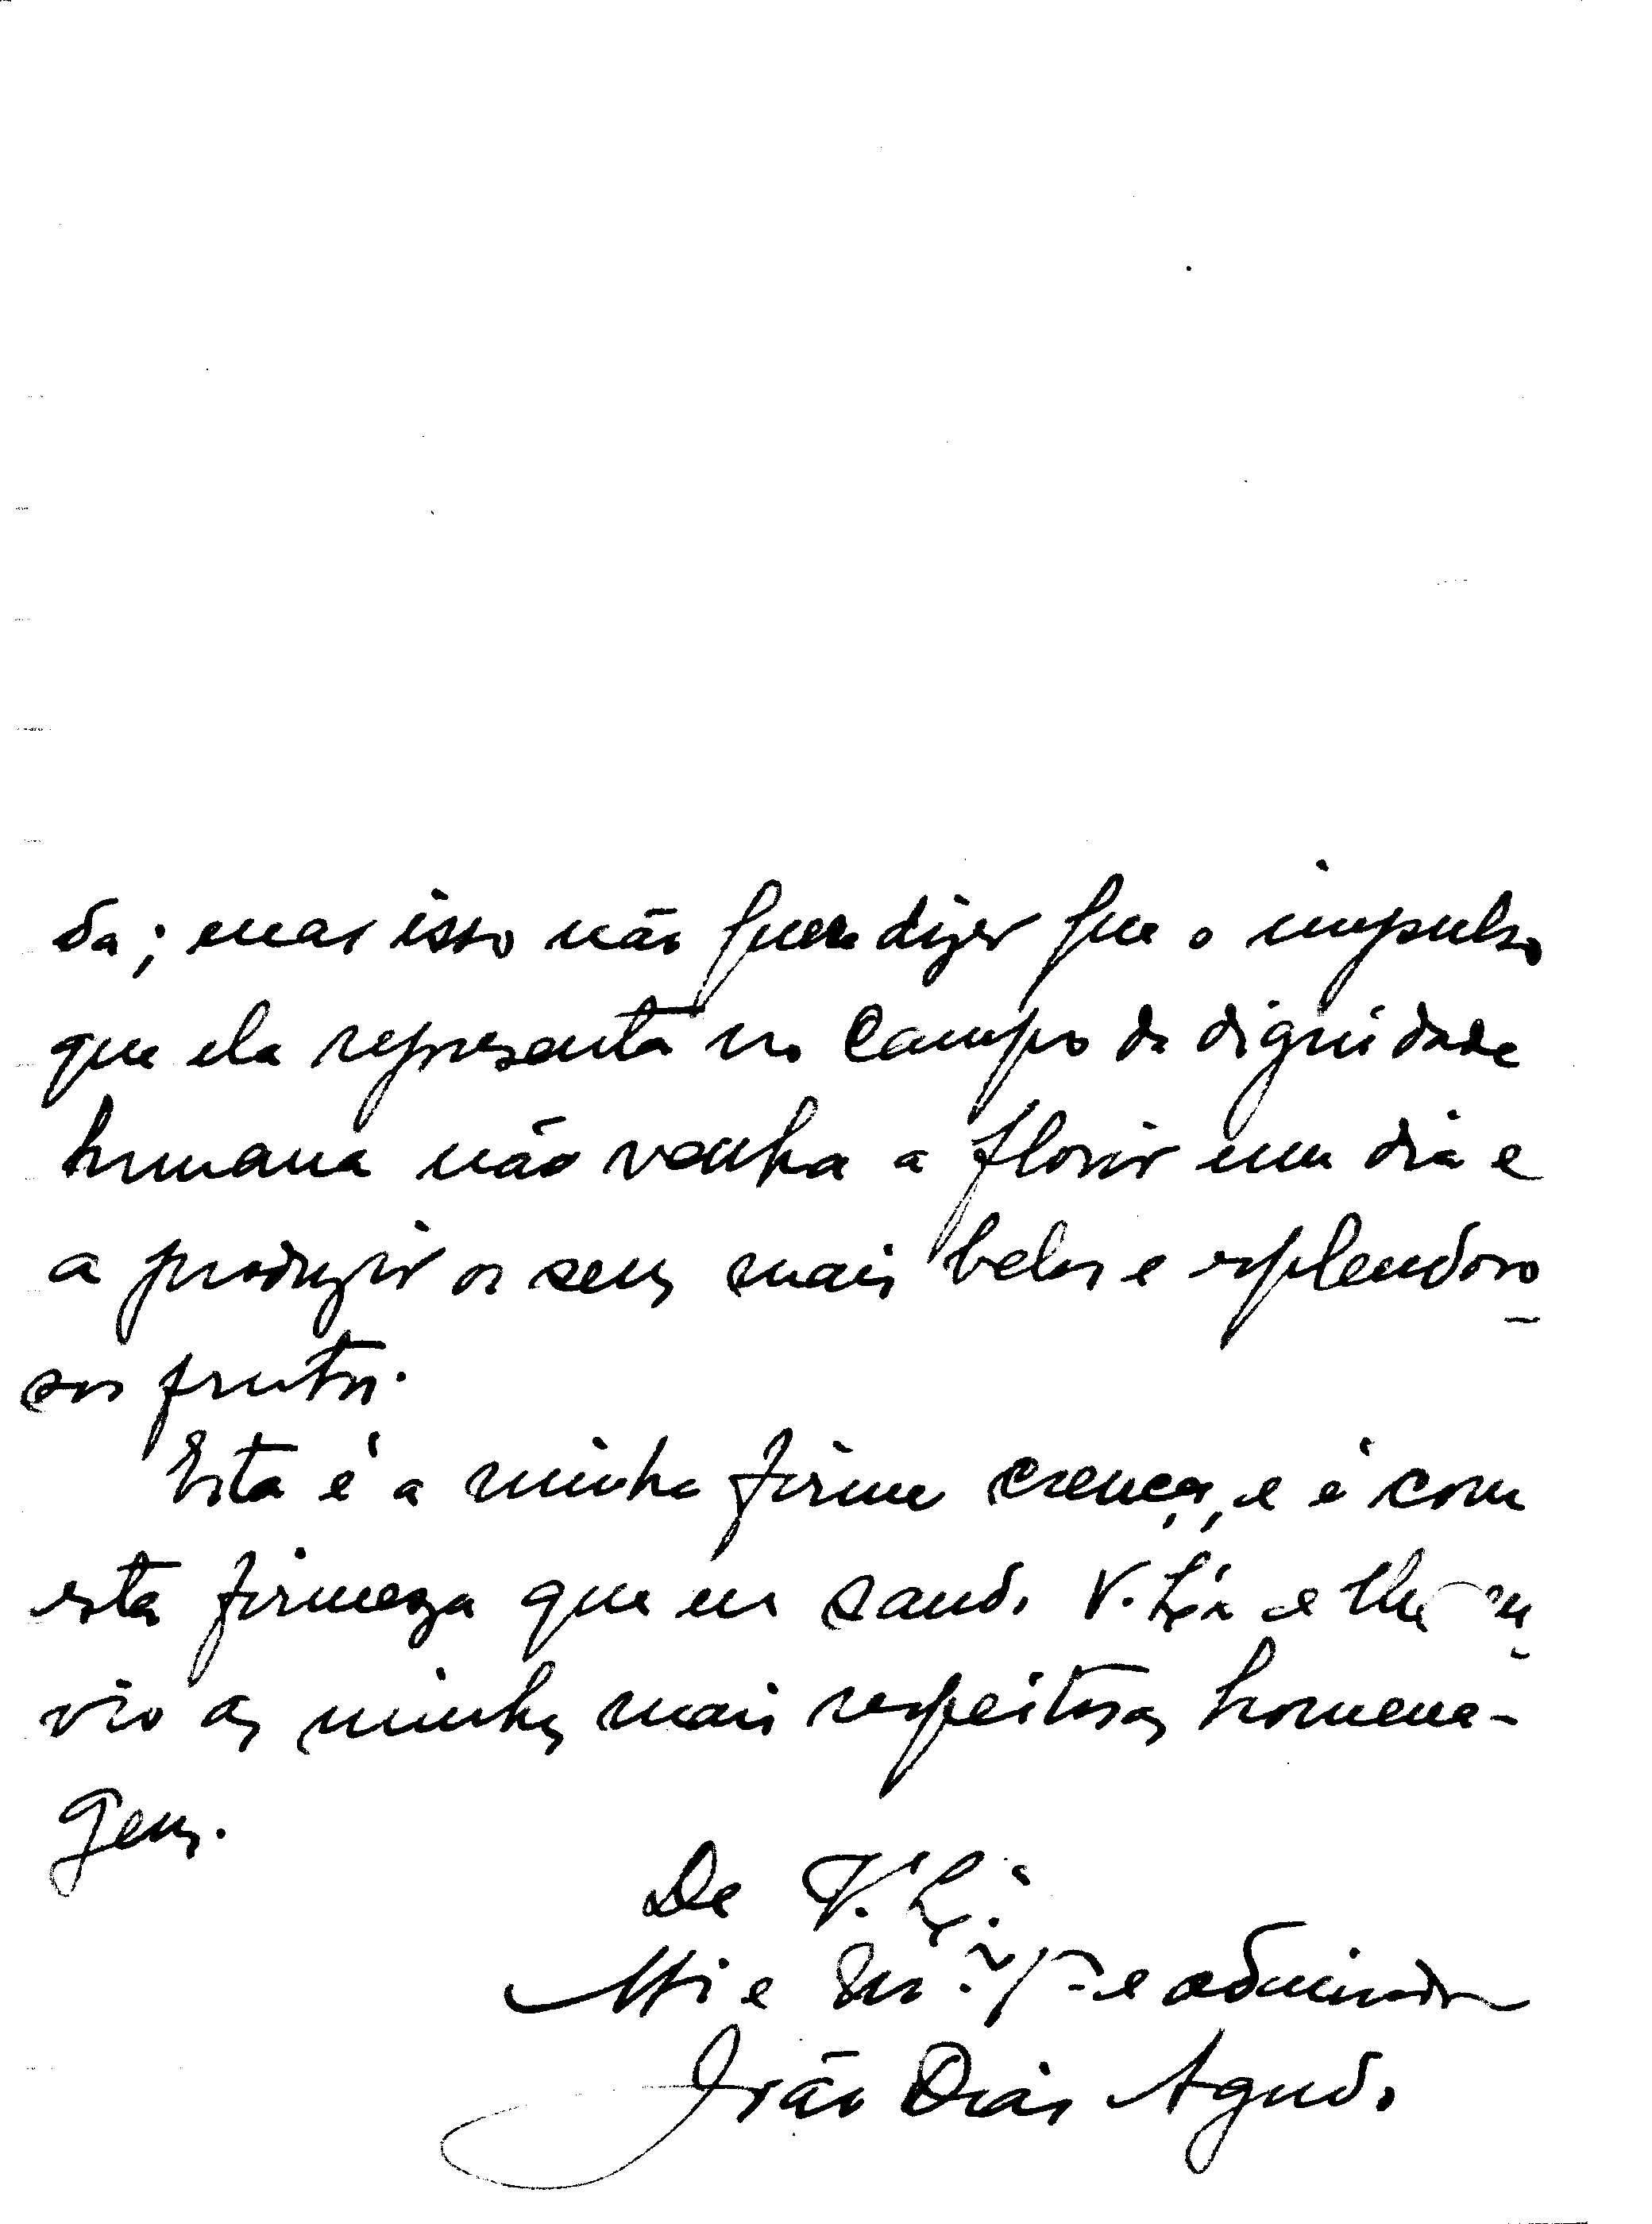 da; mas isso não quer dizer que o impulso
que ela representa no campo da dignidade
humana não venha a florir um dia e
a produzir os seus mais belos e esplendoro
sos frutos.
Esta é a minha firme crença, e é com
esta firmeza que eu saudo V. Ex.ª e lhe en
vio as minhas mais respeitosas homena-
gens.
De V. Ex.ª
e admirador
João Dias Agudo